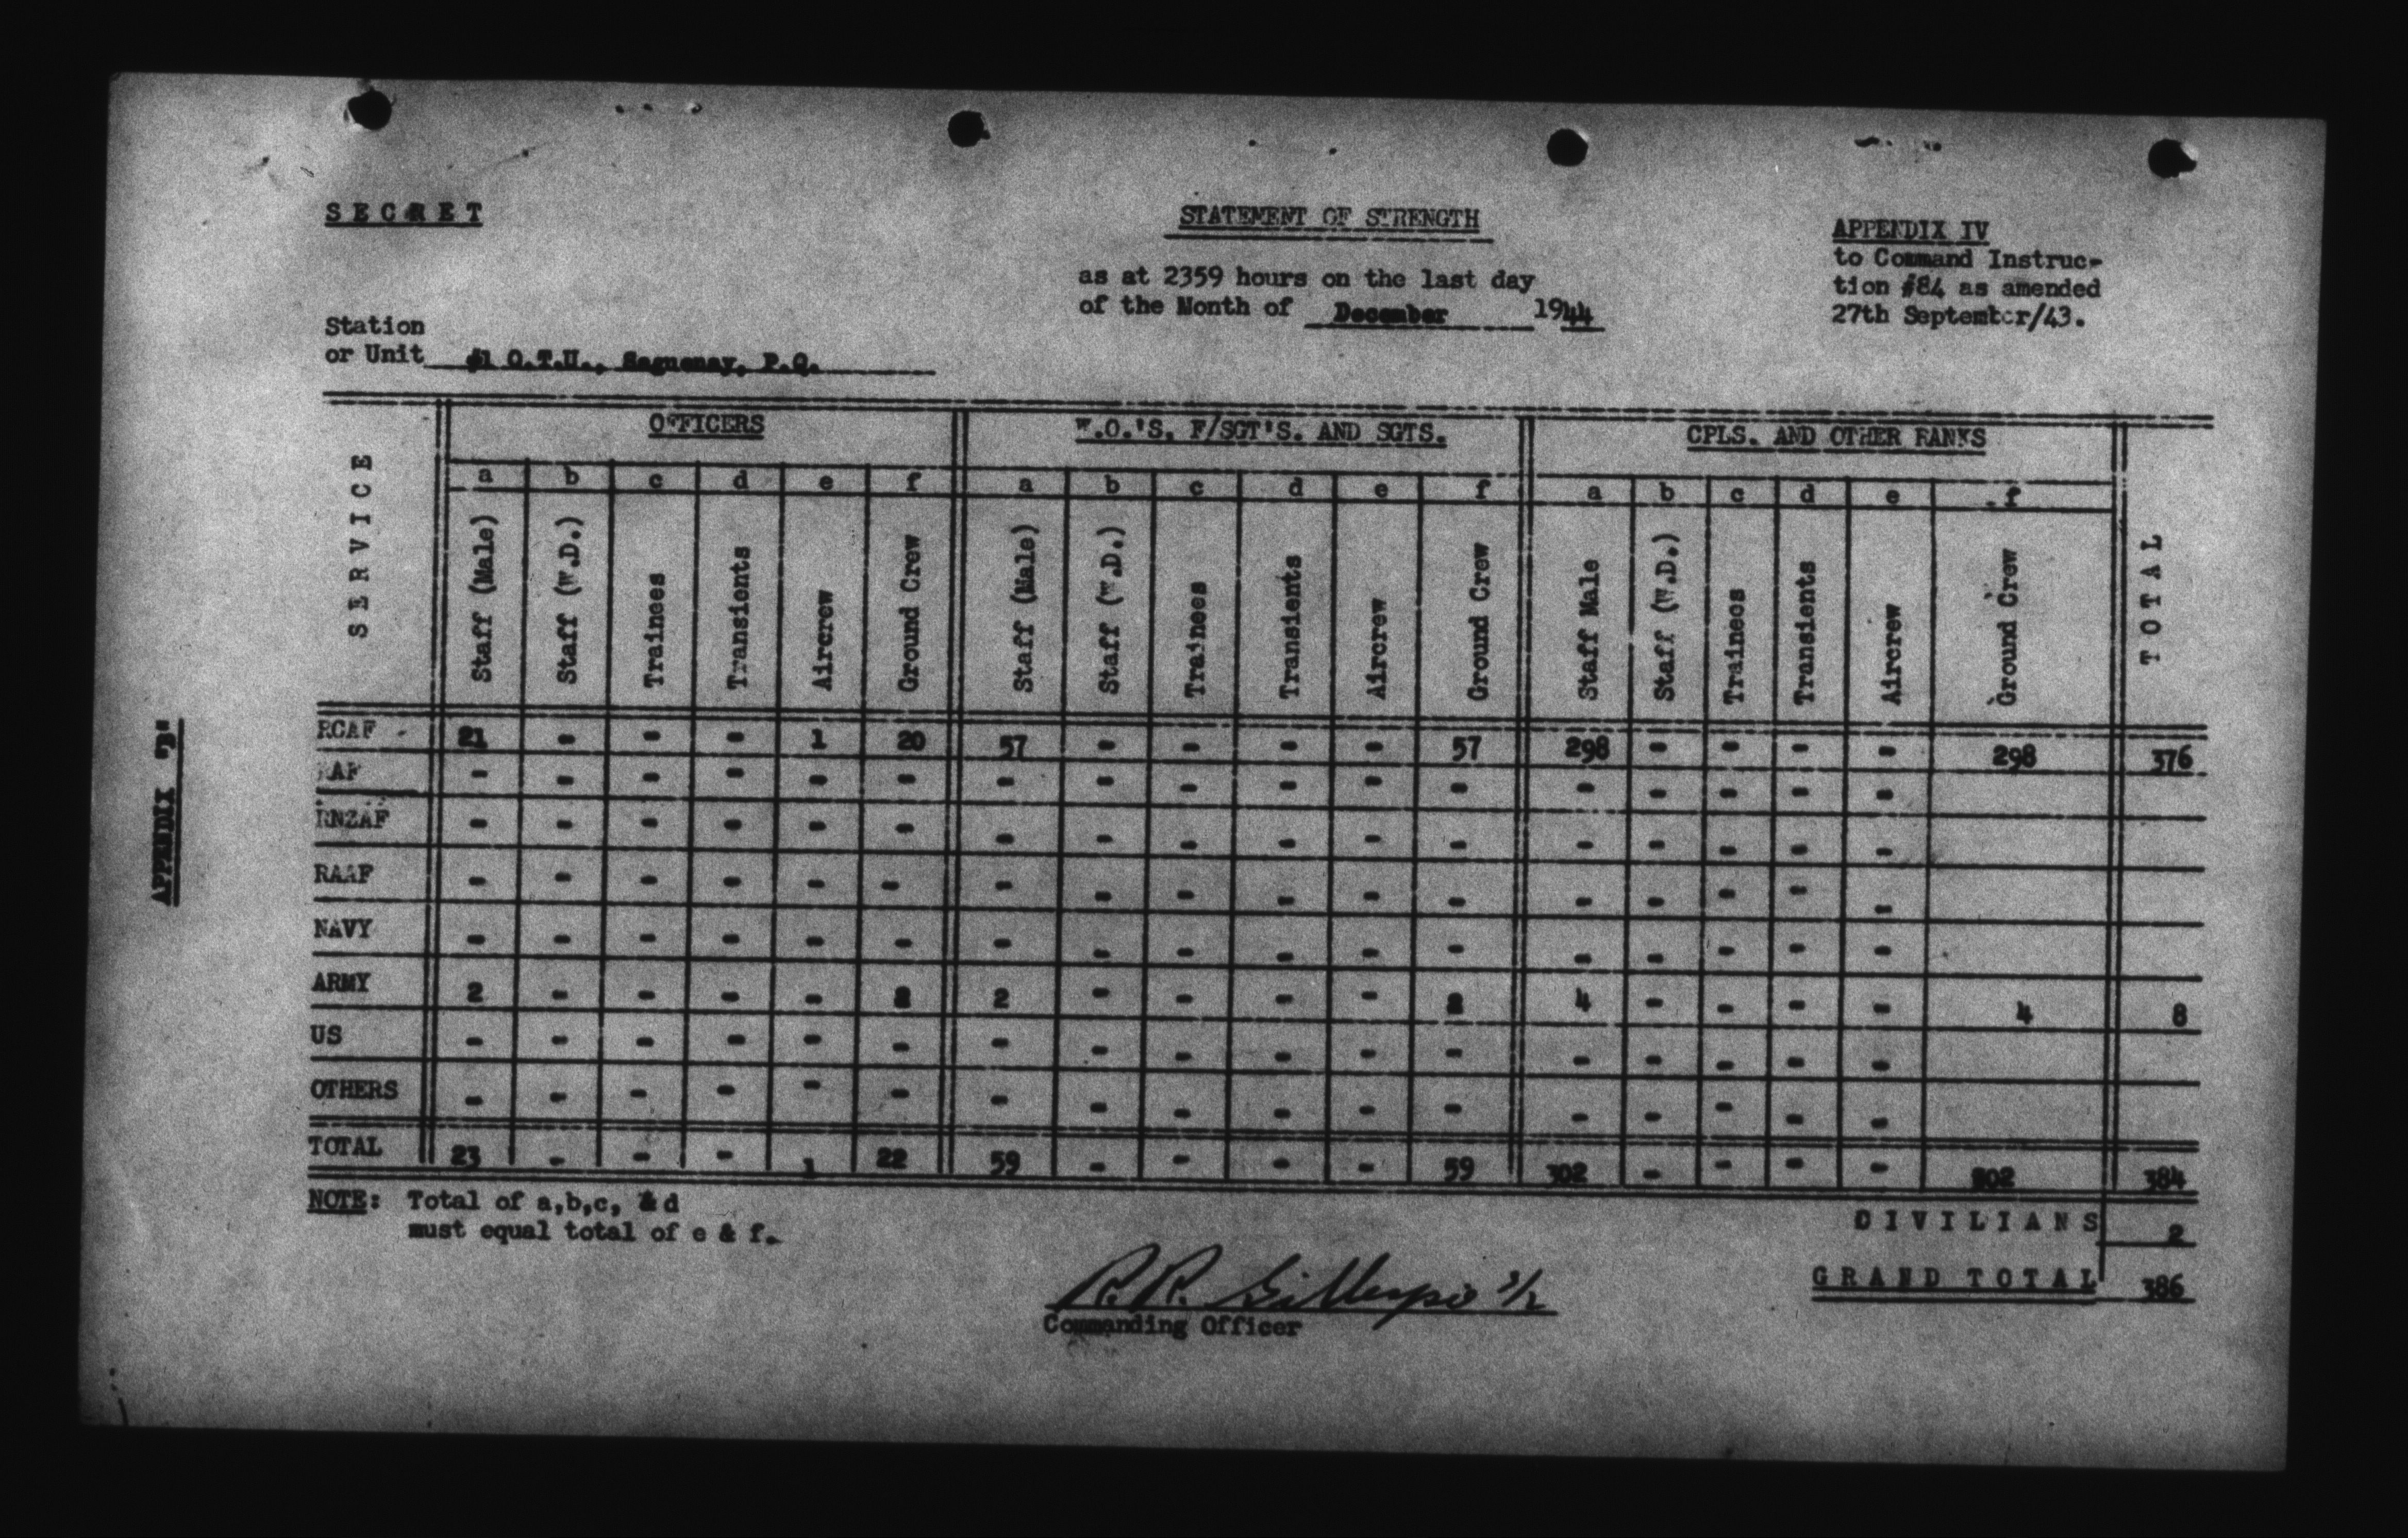 SECRET
STATEMENT OF STRENGTH
as at 2359 hours on the last day
of the Month of December 1944
APPENDIX IV
to Command Instruc-
tion #84 as amended
27th September/43.
Station
or Unit #1 O.T.U., Saguenay, P.Q.
APPENDIX "B"
SERVICE OFFICERS W.O.'S. F/SGT'S. AND SGTS. CPLS. AND OTHER RANKS TOTAL
a b c d e f a b c d e f a b c d e f
Staff (Male) Staff (W.D.) Trainees Transients Aircrew Ground Crew Staff (Male) Staff (W.D.) Trainees Transients Aircrew Ground Crew Staff Male Staff (W.D.) Trainees Transients Aircrew Ground Crew
RCAF 21 - - - 1 20 57 - - - - 57 298 - - - - 298 376
RAF - - - - - - - - - - - - - - - - -
RNZAF - - - - - - - - - - - - - - - - -
RAAF - - - - - - - - - - - - - - - - -
NAVY - - - - - - - - - - - - - - - - -
ARMY 2 - - - - 2 2 - - - - 2 4 - - - - 4 8
US - - - - - - - - - - - - - - - - -
OTHERS - - - - - - - - - - - - - - - - -
TOTAL 23 - - - 1 22 59 - - - - 59 302 - - - - 302 384
NOTE: Total of a,b,c, & d
must equal total of e & f.
CIVILIANS 2
GRAND TOTAL 386
R.R. Gillespie
Commanding Officer